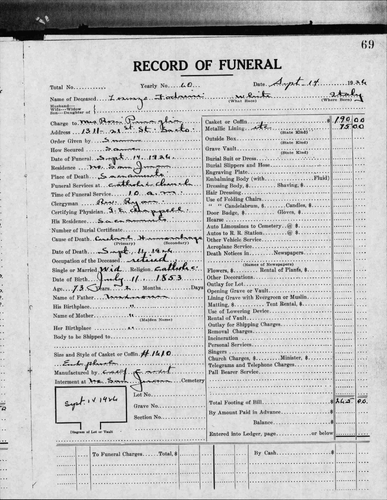 69
RECORD OF FUNERAL
Total No. Yearly No. 60 Date Sept. 14 1926
Name of Deceased White Italy
(What Race) (Where Born)
Husband—
Wife—Widow
Son—Daughter of
Charge to Mrs Rosa
Address 1311 - 21 st St. Sacto.
Order Given by Same
How Secured Same
Date of Funeral Sept. 14, 1926.
Residence
Place of Death Sacramento
Funeral Services at Catholic Church
Time of Funeral Service 10 a.m.
Clergyman Rev. Ryan
Certifying Physician Chappell
His Residence Sacramento
Number of Burial Certificate
Cause of Death Cerebral Hemorrhage
(Primary) (Secondary)
Date of Death Sept. 11, 1926
Occupation of the Deceased retired
Single or Married Wid. Religion Catholic
Date of Birth July 11, 1853
Age 73 Years Months Days
Name of Father unknown
His Birthplace "
Name of Mother "
(Maiden Name)
Her Birthplace "
Body to be Shipped to
Size and Style of Casket or Coffin #1610
Manufactured by
Interment at Cemetery
Lot No.
Grave No.
Section No.
Sept. 14 1926
Diagram of Lot or Vault
Casket or Coffin 190 00
Metallic Lining 75 00
(State Kind)
Outside Box
(State Kind)
Grave Vault
(State Kind)
Burial Suit or Dress
Burial Slippers and Hose
Engraving Plate
Embalming Body (with Fluid)
Dressing Body, $ Shaving, $
Hair Dressing
Use of Folding Chairs
" " Candelabrum, $ Candles, $
Door Badge, $ Gloves, $
Hearse
Auto Limousines to Cemetery @ $
Autos to R. R. Station @ $
Other Vehicle Service
Aeroplane Service
Death Notices in Newspapers
(Names of Newspapers)
Flowers, $ Rental of Plants, $
Other Decorations
Outlay for Lot
Opening Grave or Vault
Lining Grave with Evergreen or Muslin
Matting, $ Tent Rental, $
Use of Lowering Device
Rental of Vault
Outlay for Shipping Charges
Removal Charges
Incineration
Personal Services
Singers
Church Charges, $ Minister, $
Telegrams and Telephone Charges
Pall Bearer Service
Total Footing of Bill 265 00
By Amount Paid in Advance
Balance
Entered into Ledger, page or below
To Funeral Charges, Total $ By Cash